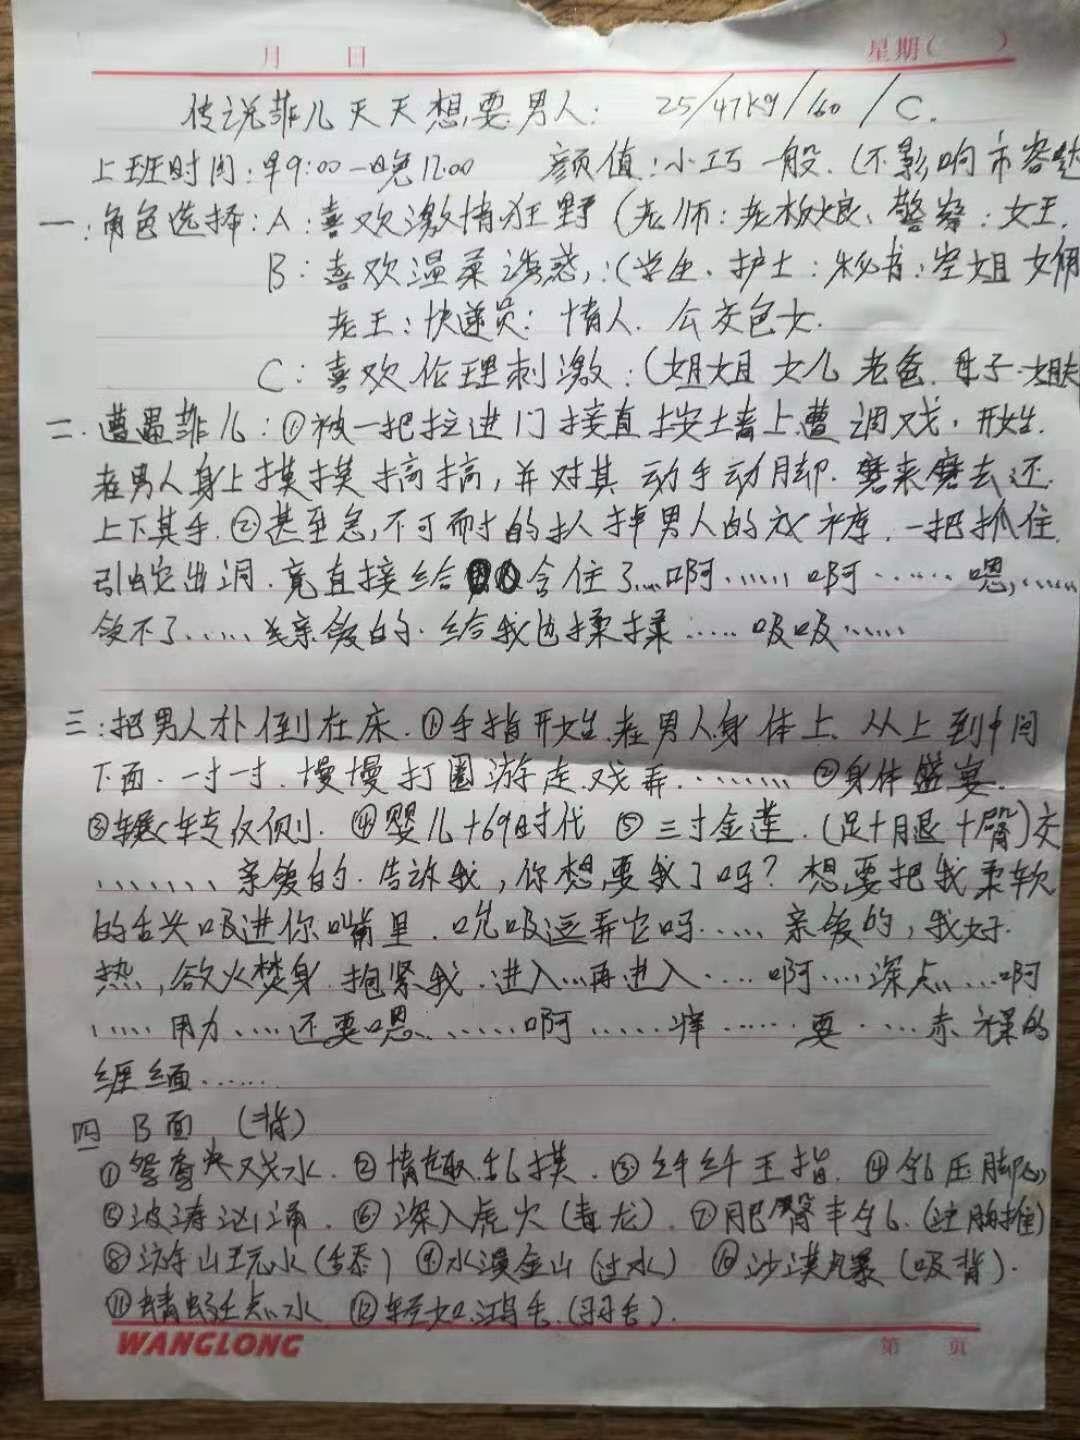 月 日 星期( )
传说菲儿天天想要男人: 25/47kg/160/C.
上班时间:早9:00—晚12:00 颜值:小巧一般.(不影响市容
一:角色选择:A:喜欢激情狂野(老师:老板娘、警察:女王.
B:喜欢温柔诱惑:(学生、护士:秘书:空姐 女佣
老王:快递员:情人.公交色女.
C:喜欢伦理刺激:(姐姐 女儿 老爸.母子.
二.遭遇菲儿:①被一把拉进门接直按土墙上遭调戏,开始.
在男人身上摸摸搞搞,并对其动手动脚.磨来磨去还.
上下其手.②甚至急不可耐的扒掉男人的衣裤.一把抓住.
引蛇出洞.竟直接给 含住了…啊…… 啊…… 嗯,……
受不了…… 亲爱的.给我也揉揉…… 吸吸……
三:把男人扑倒在床.①手指开始在男人身体上.从上到中间
下面.一寸一寸.慢慢打圈游走.戏弄……… ②身体盛宴.
③辗转反侧.④婴儿+69时代 ⑤三寸金莲.(足+腿+臀)交
……… 亲爱的.告诉我,你想要我了吗?想要把我柔软
的舌头吸进你嘴里.吮吸逗弄它吗…… 亲爱的,我好.
热,欲火焚身.抱紧我.进入…再进入…… 啊…… 深点…… 啊
…… 用力…… 还要嗯…… 啊…… 痒…… 要…… 赤裸的
缠绵……
四 B面 (背)
①鸳鸯戏水.②情趣乱摸.③纤纤玉指.④乳压脚心
⑤波涛汹涌.⑥深入虎穴(毒龙).⑦肥臀丰乳.(胸推)
⑧游山玩水(舌舔) ⑨水漫金山(过水) ⑩沙漠风暴(吸背).
⑪蜻蜓点水 ⑫轻如鸿毛.(羽毛).
WANGLONG 第 页